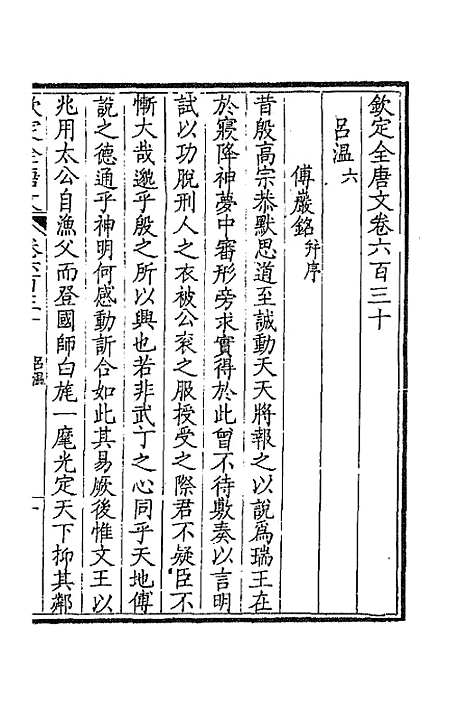 欽定全唐文卷六百三十
呂溫六
傅巖銘并序
昔殷高宗恭默思道至誠動天天將報之以說為瑞王在
於寢降神夢中審形旁求實得於此曾不待敷奏以言明
試以功脫刑人之衣被公衮之服授受之際君不疑臣不
慚大哉邈乎殷之所以興也若非武丁之心同乎天地傅
說之德通乎神明何感動訢合如此其易厥後惟文王以
兆用太公自漁父而登國師白旄一麾光定天下抑其鄰
欽定全唐文
卷六百三十
呂溫
一